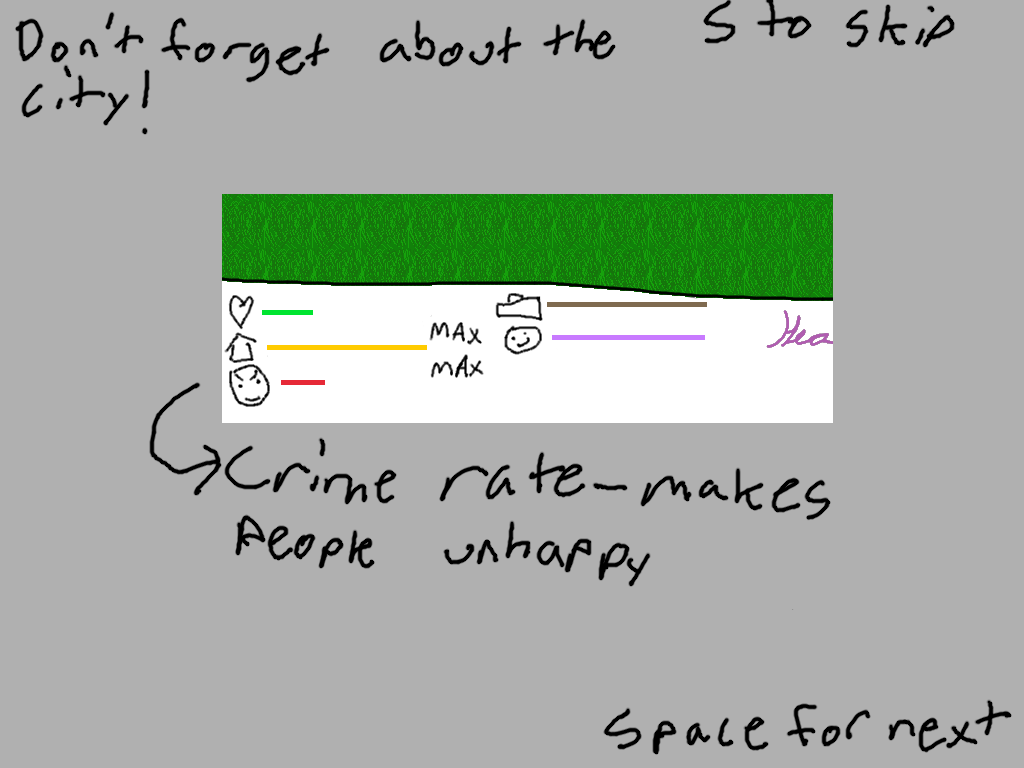 Don't forget about the
city!
S to skip
MAX
MAX
Hea
Crime rate-makes
People unhappy
Space for next